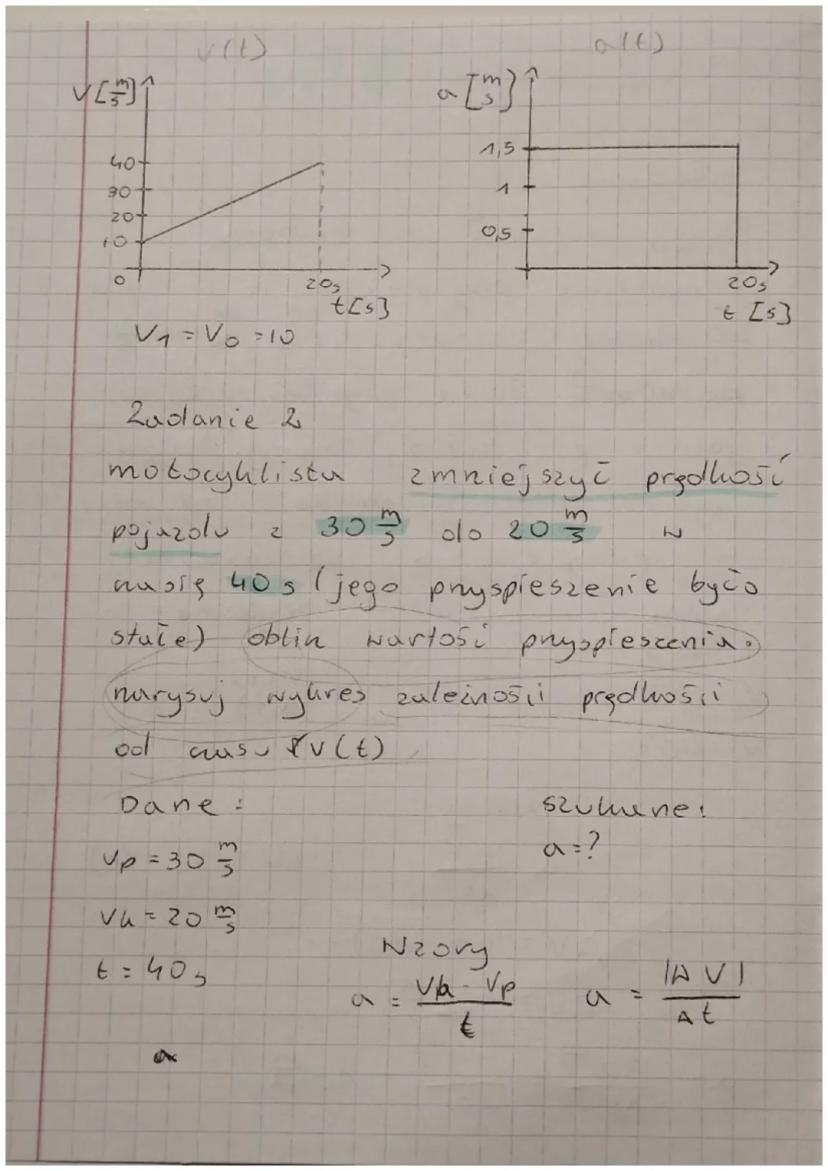 v(t)
a(t)
V[m/s]
40
30
20
10
0
20s
t[s]
V1 = V0 = 10
a [m/s]
1,5
1
0,5
20s
t [s]
Zadanie 2
motocyklista zmniejszył prędkość
pojazdu z 30 m/s do 20 m/s w
czasię 40 s (jego przyspieszenie było
stałe) oblicz wartość przyspieszenia.
narysuj wykres zależności prędkości
od czasu V(t)
Dane:
Szukane:
Vp = 30 m/s
a = ?
Vk = 20 m/s
t = 40s
Wzory
a = Vk - Vp / t
a = |ΔV| / Δt
a